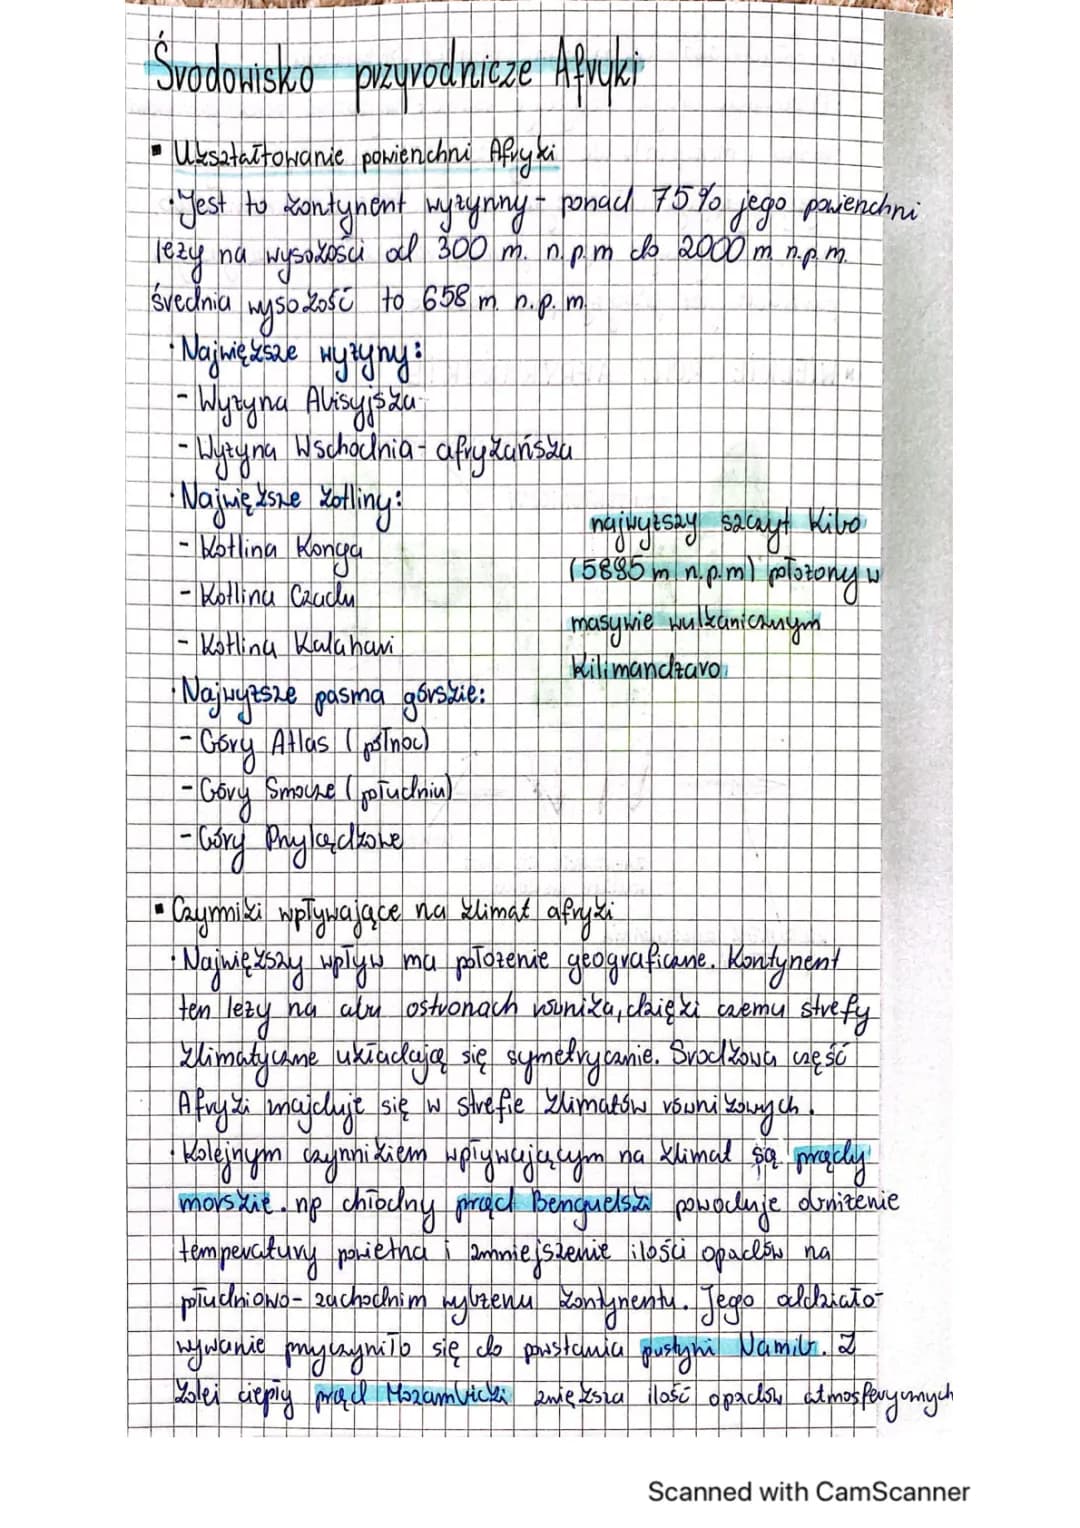 Środowisko przyrodnicze Afryki
▪ Ukształtowanie powierzchni Afryki
• Jest to kontynent wyżynny - ponad 75% jego powierzchni
leży na wysokości od 300 m. n.p.m do 2000 m n.p.m.
średnia wysokość to 658 m. n.p.m.
• Największe wyżyny:
- Wyżyna Abisyjska
- Wyżyna Wschodnia - afrykańska
• Największe kotliny:
- Kotlina Konga
- Kotlina Czadu
- Kotlina Kalahari
najwyższy szczyt Kibo
(5895 m n.p.m) położony w
masywie wulkanicznym
Kilimandżaro
• Najwyższe pasma górskie:
- Góry Atlas (północ)
- Góry Smocze (południu)
- Góry Przylądkowe
▪ Czynniki wpływające na klimat afryki
• Największy wpływ ma położenie geograficzne. Kontynent
ten leży na obu ostronach równika, dzięki czemu strefy
klimatyczne układają się symetrycznie. Środkowa część
Afryki znajduje się w strefie klimatów równikowych.
• Kolejnym czynnikiem wpływającym na klimat są prądy
morskie. np chłodny prąd Benguelski powoduje obniżenie
temperatury powietrza i zmniejszenie ilości opadów na
południowo-zachodnim wybrzeżu kontynentu. Jego oddziało-
wywanie przyczyniło się do powstania pustyni Namib. Z
kolei ciepły prąd Mozambicki zwiększa ilość opadów atmosferycznych
Scanned with CamScanner